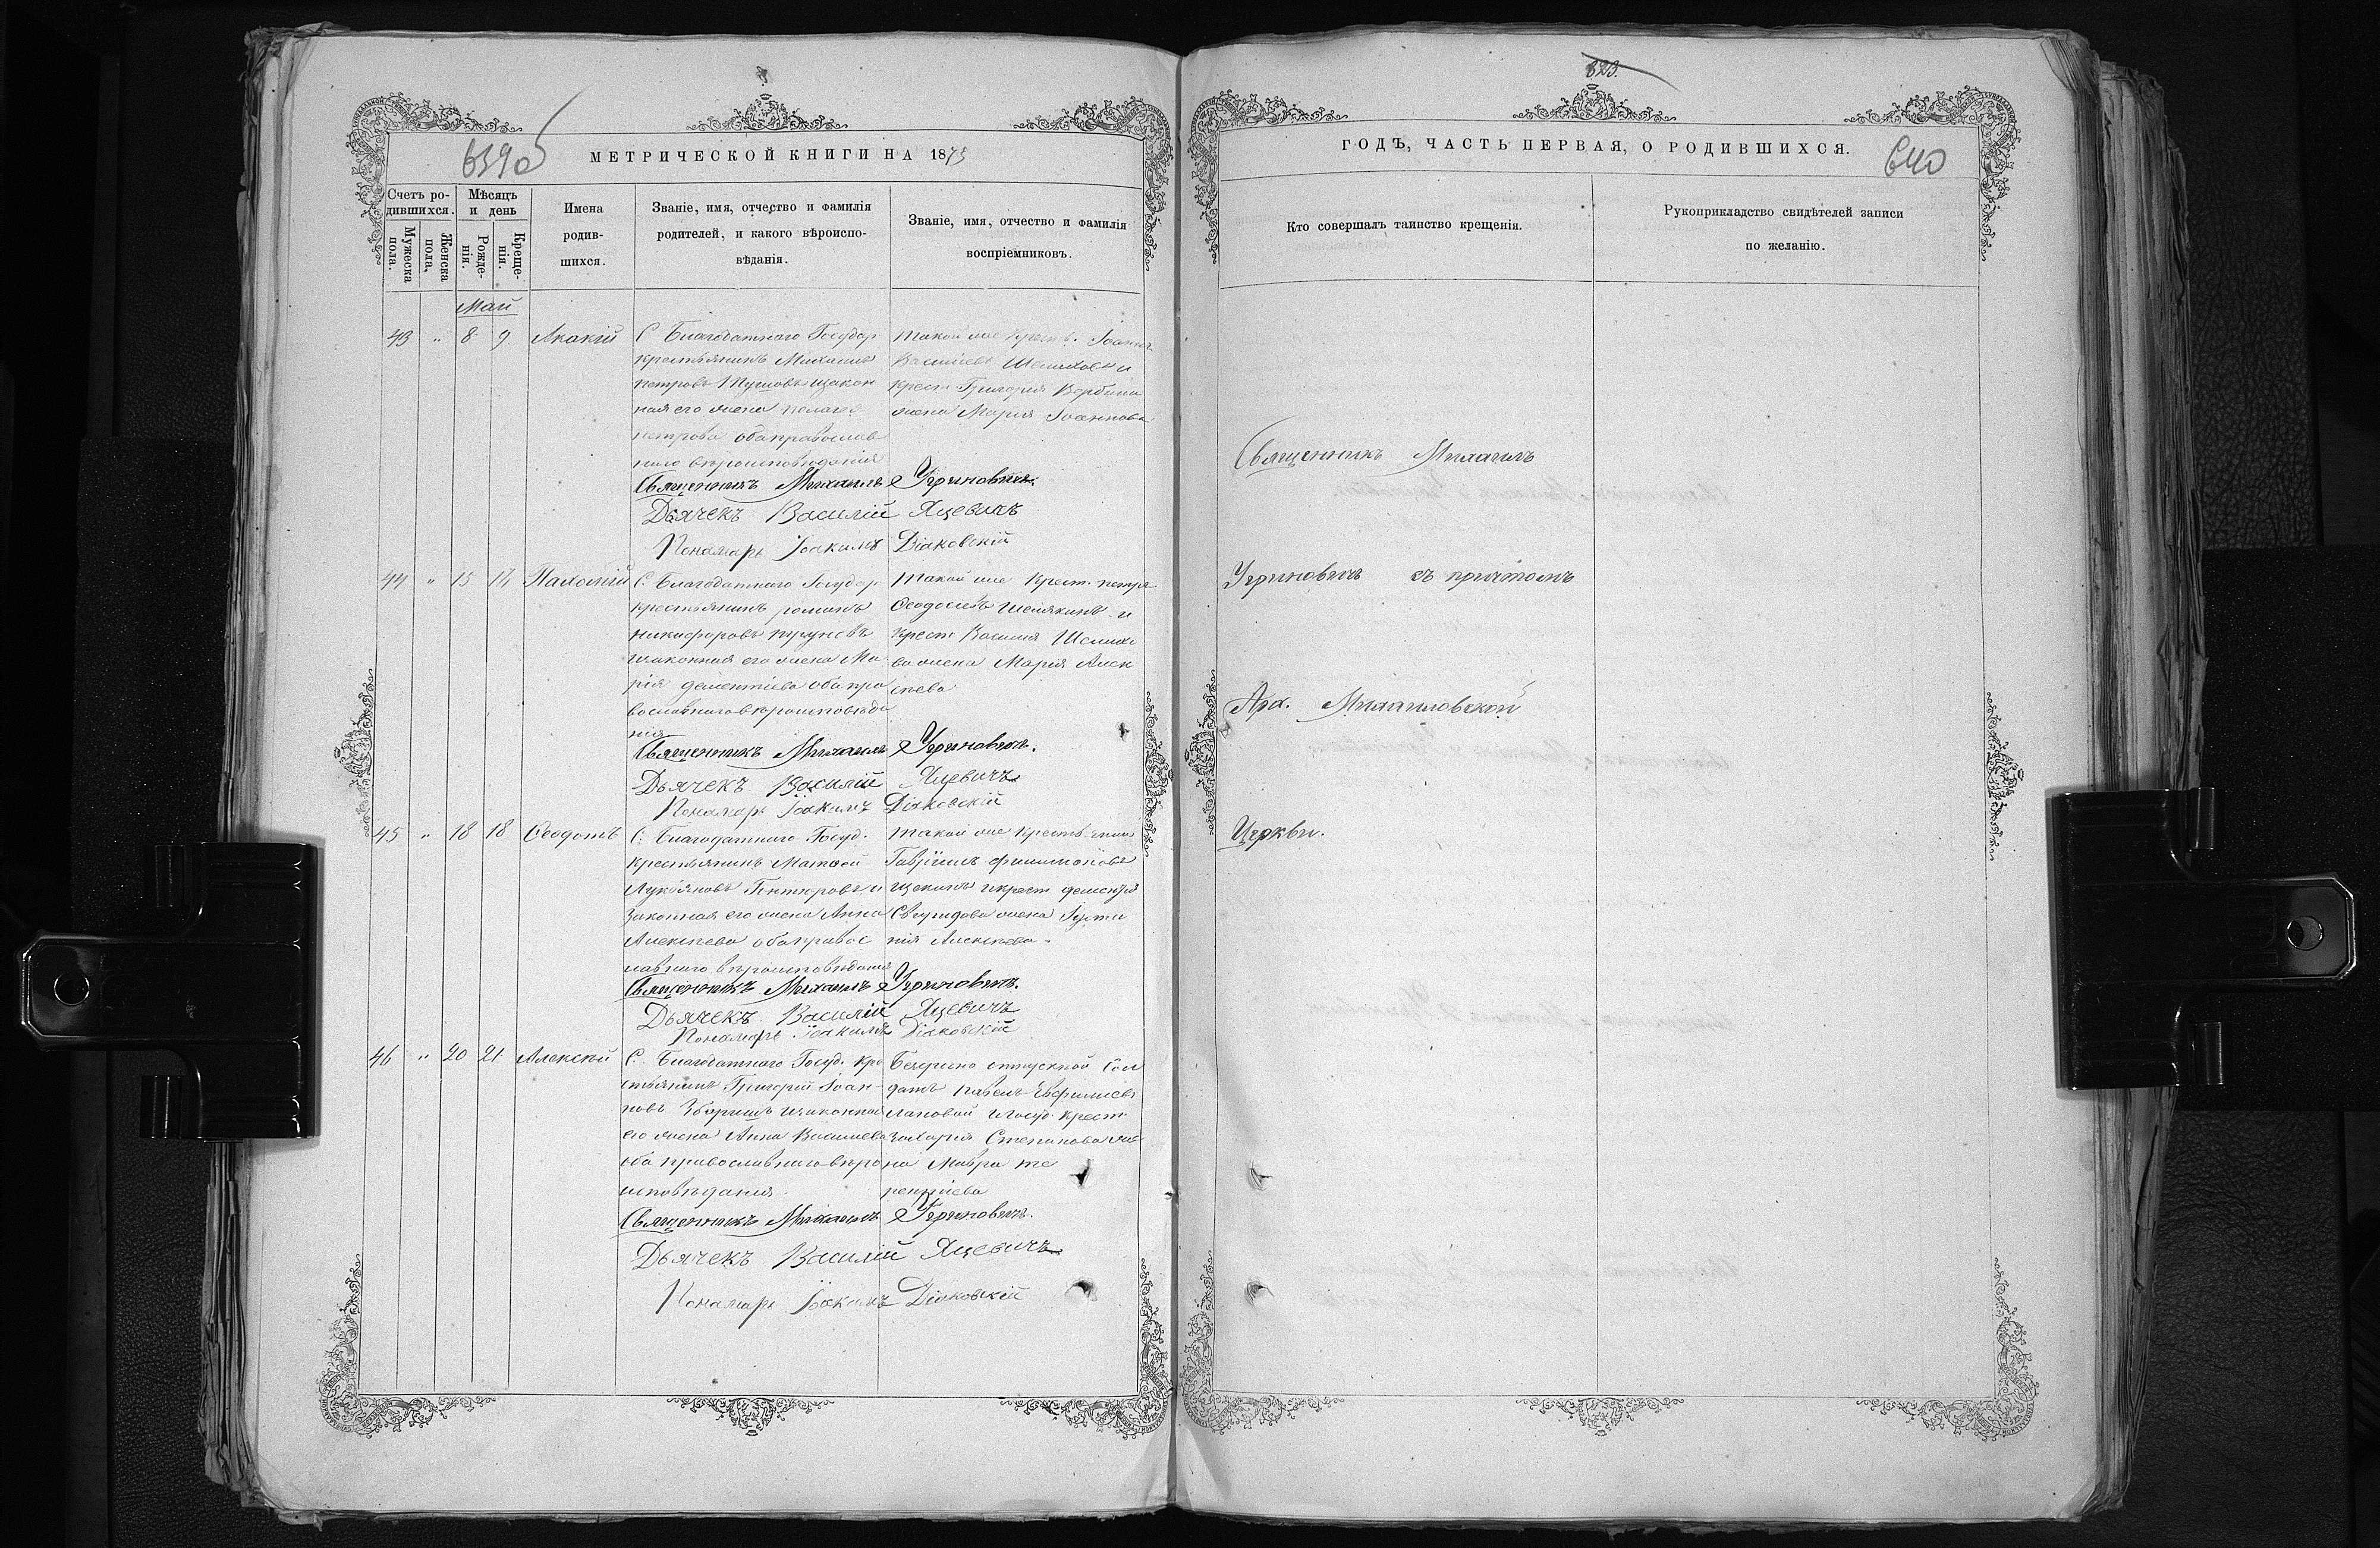 639об
МЕТРИЧЕСКОЙ КНИГИ НА 1875
Счетъ ро-
дившихся.
Мужеска
пола.
Женска
пола,
Мѣсяцъ
и день
Рожде-
нія.
Креще-
нія.
Имена
родив-
шихся.
Званіе, имя, отчество и фамилія
родителей, и какого вѣроиспо-
вѣданія.
Званіе, имя, отчество и фамилія
воспріемниковъ.
Май
43 " 8 9 Акакій
С Благодатнаго Государ
крестьянинъ Михаилъ
петровъ изакон
ная его жена пелагея
петрова оба православ
наго вѣроисповѣданія
такой же Крест. Іоаннъ
Васильевъ и
крест Григорія Вербина
жена Марія Іоаннова
Священникъ Михаилъ Угриновичъ.
Дьячекъ Василій Яцевичъ
Пономарь Іоакимъ Діаковскій
44 " 15 Пахомій
С. Благодатнаго Государ
крестьянинъ романъ
никифоровъ
изаконная его жена Ма
рія дементіева оба пра
вославнаго вѣроисповѣда
нія
такой же Крест. петръ
Феодосіевъ Шелякинъ и
крест Василія
ва жена Марія Алек
сѣева
Священникъ Михаилъ Угриновичъ.
Дьячекъ Василій Яцевичъ
Пономарь Іоакимъ Діаковскій
45 " 18 18 Феодотъ
С. Благодатнаго Госуд.
крестьянинъ Матфей
Лукіяновъ и
законная его жена Анна
Алексѣева оба правос
лавнаго вѣроисповѣданія
такой же
Гавріилъ филимоновъ
Щекинъ икрест
Свиридова жена Іусти
нія Алексѣева.
Священникъ Михаилъ Угриновичъ.
Дьячекъ Василій Яцевичъ
Пономарь Іоакимъ Діаковскій
46 " 20 21 Алексѣй
С. Благодатнаго Госуд. кре
стьянинъ Григорій Іоан-
новъ изаконная
его жена Анна Васильева
оба православнаго вѣро
исповѣданія
Безсрочно отпускной Сол
датъ павелъ Евфиміевъ
Лаповой игосуд. крест
захарія Степанова же
на Мавра те
рентіева
Священникъ Михаилъ Угриновичъ.
Дьячекъ Василій Яцевичъ
Пономарь Іоакимъ Діаковскій
823.
640
ГОДЪ, ЧАСТЬ ПЕРВАЯ, О РОДИВШИХСЯ.
Кто совершалъ таинство крещенія.
Рукоприкладство свидѣтелей записи
по желанію.
Священникъ Михаилъ
Угриновичъ съ причтомъ
Арх. Михаиловской
Церкви.